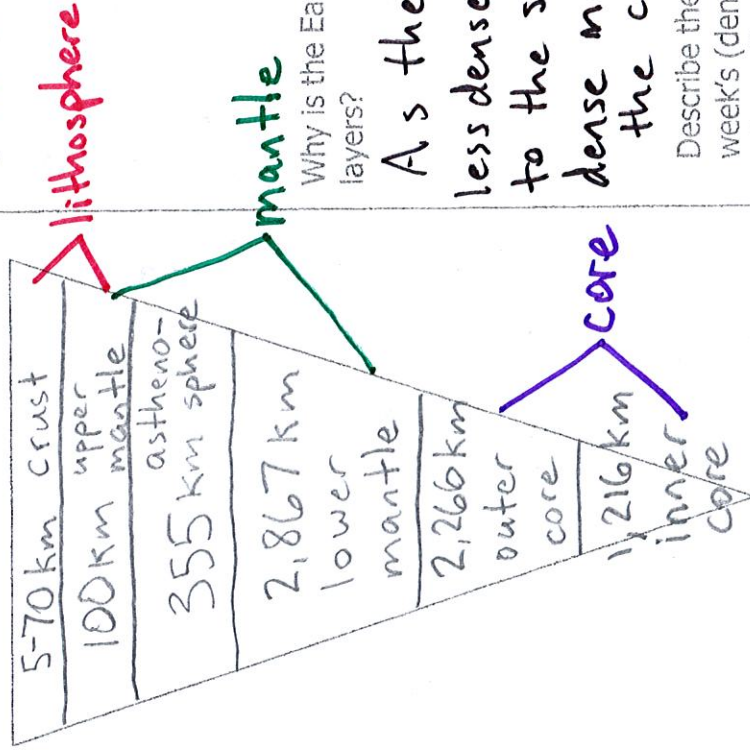 5-70 km crust
100 km upper
mantle
astheno-
355 km sphere
2,867 km
lower
mantle
2,266 km
outer
core
1,216 km
inner
core
lithosphere
mantle
core
Why is the Ea
layers?
As the
less dense
to the s
dense m
the c
Describe the
week's (den